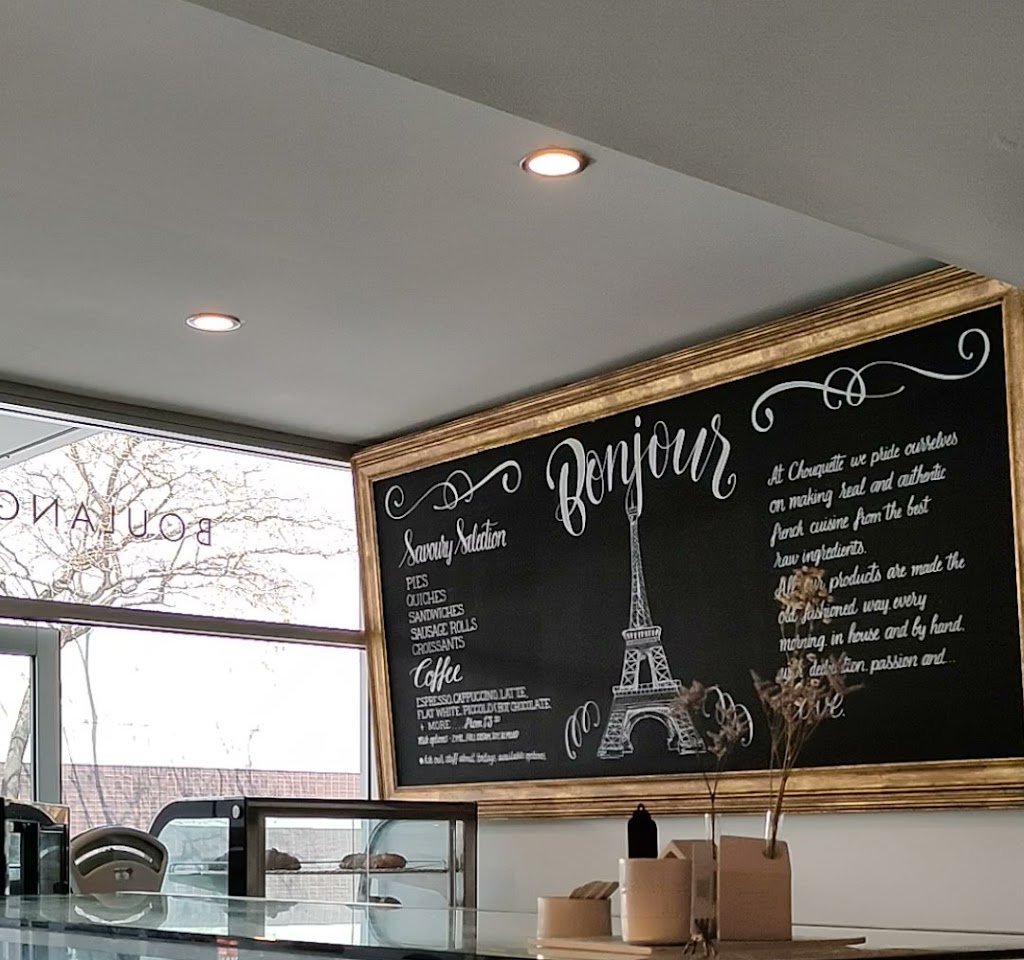 BOULANG
Bonjour
Savoury Selection
PIES
QUICHES
SANDWICHES
SAUSAGE ROLLS
CROISSANTS
Coffee
ESPRESSO, CAPPUCCINO, LATTE,
FLAT WHITE, PICCOLO, HOT CHOCOLATE
+ MORE....
options -
At Chouquette we pride ourselves
on making real and authentic
french cuisine from the best
raw ingredients.
All our products are made the
old fashioned way, every
morning, in house and by hand,
with dedication, passion and...
love.